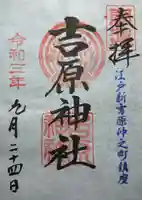 奉拝
江戸新吉原仲之町鎮座
吉原神社
令和三年
九月二十四日